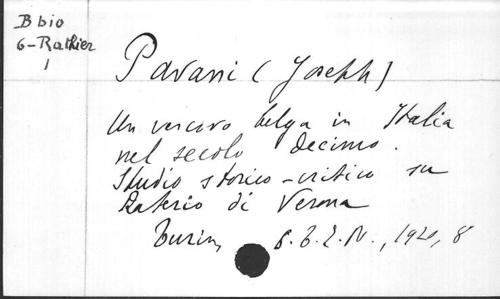 B bio
6-Rathier
1
Pavani (Joseph)
Un vescovo belga in Italia
nel secolo decimo.
Studio storico-critico su
Raterio di Verona
Turin, S.E.I.N., 1920, 8